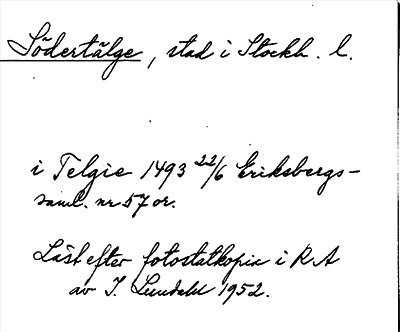 Södertälge, stad i Stockh. l.
i Telgie 1493 22/6 Eriksbergs-
saml. nr 57 or.
Läst efter fotostatkopia i R A
av I. Lundahl 1952.